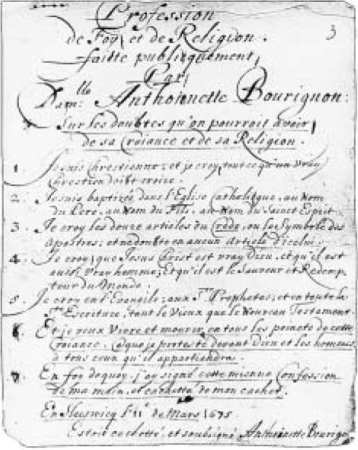 Profession
de Foy et de Religion.
faitte publicquement,
Par
Dam.lle Anthoinette Bourignon:
Sur les doubtes qu'on pourroit avoir
de sa Croiance et de sa Religion.
3
1. Je suis Chrestienne, et je croy, tout ce qu'un Vray
Chrestien doibt croire.
2. Je suis baptizée dans l'Eglise Catholique, au Nom
du Pere, au Nom du Fils, au Nom du Sainct Esprit.
3. Je croy les douze articles du Credo, ou le Symbole des
Apostres; et ne doubte en aucun Article d'icelui.
4. Je croy, que Jesus Christ est vray Dieu, et qu'il est
aussi Vray homme; Et qu'il est le Sauveur et Redemp-
teur du Monde.
5. Je croy en l'Evangile, aux Sts Prophetes, et en toute la
Ste Escriture, tout le Vieux que le Nouveau Testament.
6. Et je veux Vivre et mourir en tous les points de cette
Croiance. Ce que je proteste devant Dieu et les hommes,
à tous ceux qu'il appartiendra.
7. En foy de quoy j'ay signé cette mienne Confession
de ma main, et cachetté de mon cachet.
En Sleswicq l'11e de Mars 1675
Estoit cachetté, et soubsigné, Anthoinette Bourignon